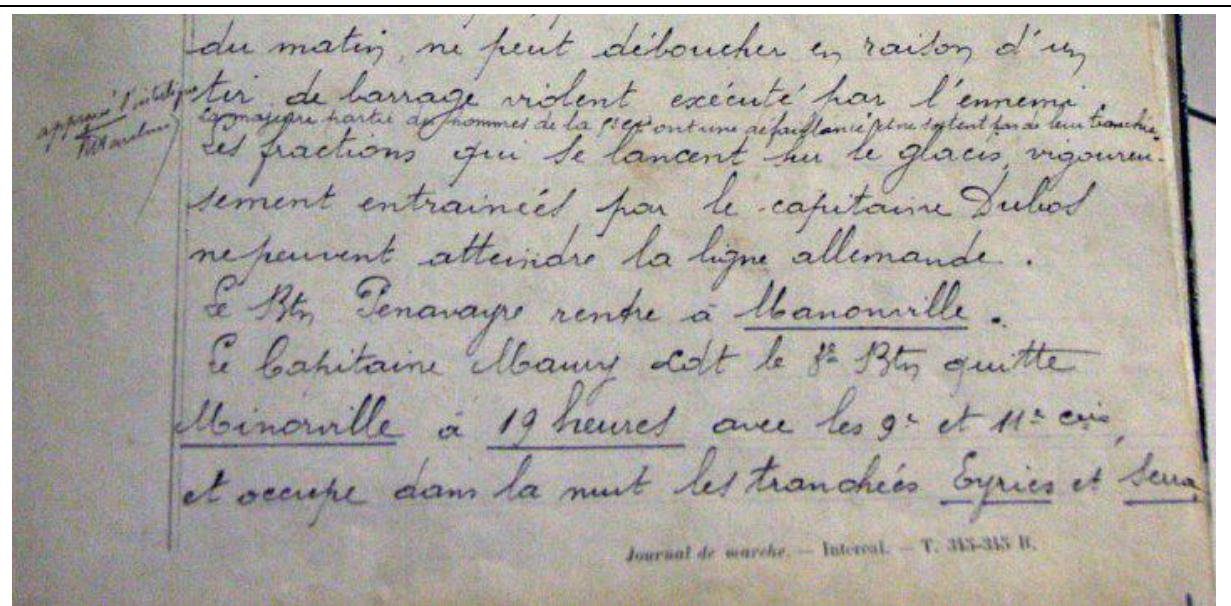 du matin, ne peut déboucher en raison d'un
tir de barrage violent exécuté par l'ennemi.
la majeure partie des hommes de la Cie ont une défaillance et ne sortent pas de leur tranchée
approuvé l'interligne
Les fractions qui se lancent sur le glacis, vigoureu-
sement entrainées par le capitaine Dubos
ne peuvent atteindre la ligne allemande.
Le Btn Penavayre rentre à Manonville.
Le Capitaine Maury cdt le Btn quitte
Minorville à 19 heures avec les 9e et 11e cies,
et occupe dans la nuit les tranchées Eyries et Serra
Journal de marche. — Intercal. — T. 345-345 B.